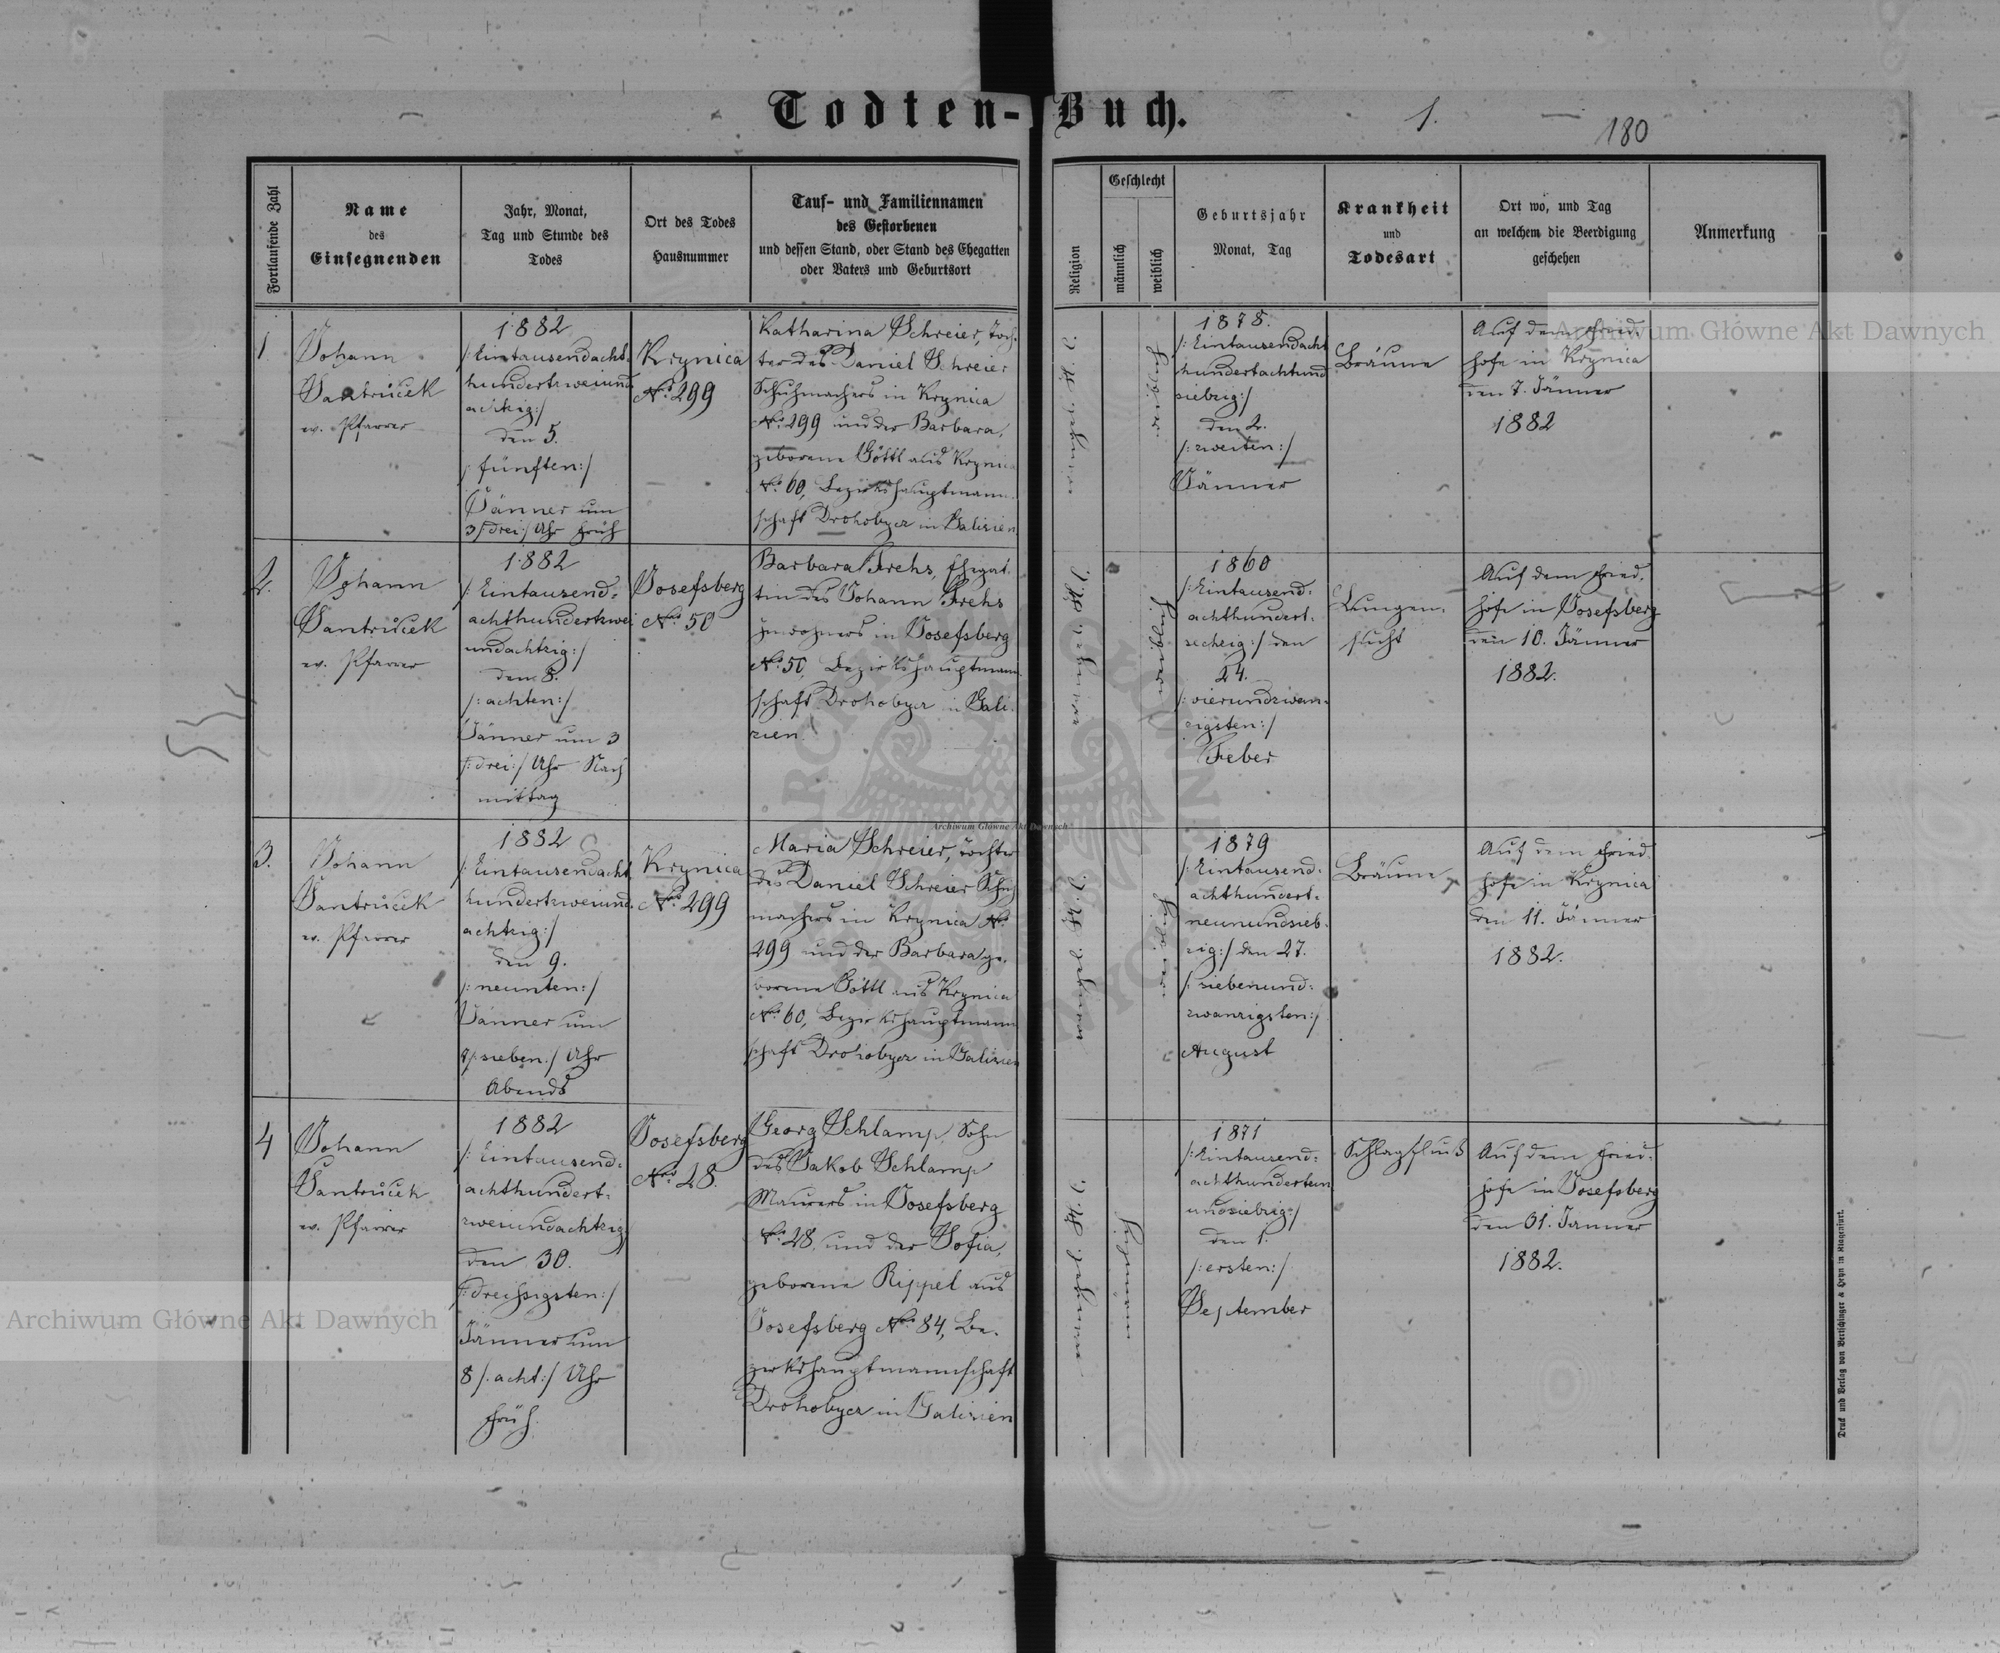 Todten-Buch.
1.
180
Fortlaufende Zahl
Name
des
Einsegnenden
Jahr, Monat,
Tag und Stunde des
Todes
Ort des Todes
Hausnummer
Tauf- und Familiennamen
des Gestorbenen
und dessen Stand, oder Stand des Ehegatten
oder Vaters und Geburtsort
Religion
Geschlecht
männlich
weiblich
Geburtsjahr
Monat, Tag
Krankheit
und
Todesart
Ort wo, und Tag
an welchem die Beerdigung
geschehen
Anmerkung
1.
Johann
Santruček
ev. Pfarrer
1882
/: Eintausendacht-
hundertzweiund
achtzig:/
den 5.
/: fünften:/
Jänner um
3 /:drei:/ Uhr Früh
Krynica
No. 299
Katharina Schreier, Toch-
ter des Daniel Schreier
Schuhmachers in Krynica
No. 299 und der Barbara,
geborene Göttl aus Krynica
No. 60, Bezirkshauptmann-
schaft Drohobycz in Galizien
1878.
/: Eintausendacht
hundertachtund
siebzig:/
den 2.
/: zweiten:/
Jänner
Bräune
Auf dem Fried-
hofe in Krynica
den 7. Jänner
1882
2.
Johann
Santruček
ev. Pfarrer
1882
/: Eintausend-
achthundertzwei
undachtzig:/
den 8.
/: achten:/
Jänner um 3
/: drei:/ Uhr Nach
mittag
Josefsberg
No. 50
Barbara Frehs, Ehegat-
tin des Johann Frehs
Inwohners in Josefsberg
No. 50, Bezirkshauptmann-
schaft Drohobycz in Gali-
zien
1860
/: Eintausend-
achthundert-
sechzig:/ den
24.
/: vierundzwan-
zigsten:/
Feber
Lungen-
sucht
Auf dem Fried-
hofe in Josefsberg
den 10. Jänner
1882.
3.
Johann
Santruček
ev. Pfarrer
1882
/: Eintausendacht
hundertzweiund-
achtzig:/
den 9.
/: neunten:/
Jänner um
7 /: sieben:/ Uhr
Abends
Krynica
No. 299
Maria Schreier, Tochter
des Daniel Schreier Schuh
machers in Krynica No.
299 und der Barbara ge-
borene Göttl aus Krynica
No. 60, Bezirkshauptmann
schaft Drohobycz in Galizien
1879
/: Eintausend-
achthundert-
neunundsieb-
zig:/ den 27.
/: siebenund-
zwanzigsten:/
August
Bräune
Auf dem Fried-
hofe in Krynica
den 11. Jänner
1882.
4
Johann
Santruček
ev. Pfarrer
1882
/: Eintausend-
achthundert-
zweiundachtzig
den 30.
/: dreissigsten:/
Jänner um
8 /: acht:/ Uhr
Früh.
Josefsberg
No. 28.
Georg Schlamp, Sohn
des Jakob Schlamp
Maurers in Josefsberg
No. 28, und der Sofia,
geborene Rippel aus
Josefsberg No. 84, Be-
zirkshauptmannschaft
Drohobycz in Galizien
1871
/: Eintausend-
achthundertein
undsiebzig:/
den 1.
/: ersten:/
September
Schlagfluß
Auf dem Fried-
hofe in Josefsberg
den 31. Jänner
1882.
Druck und Verlag von Bertschinger & Heyn in Klagenfurt.
Archiwum Główne Akt Dawnych
Archiwum Główne Akt Dawnych
Archiwum Główne Akt Dawnych